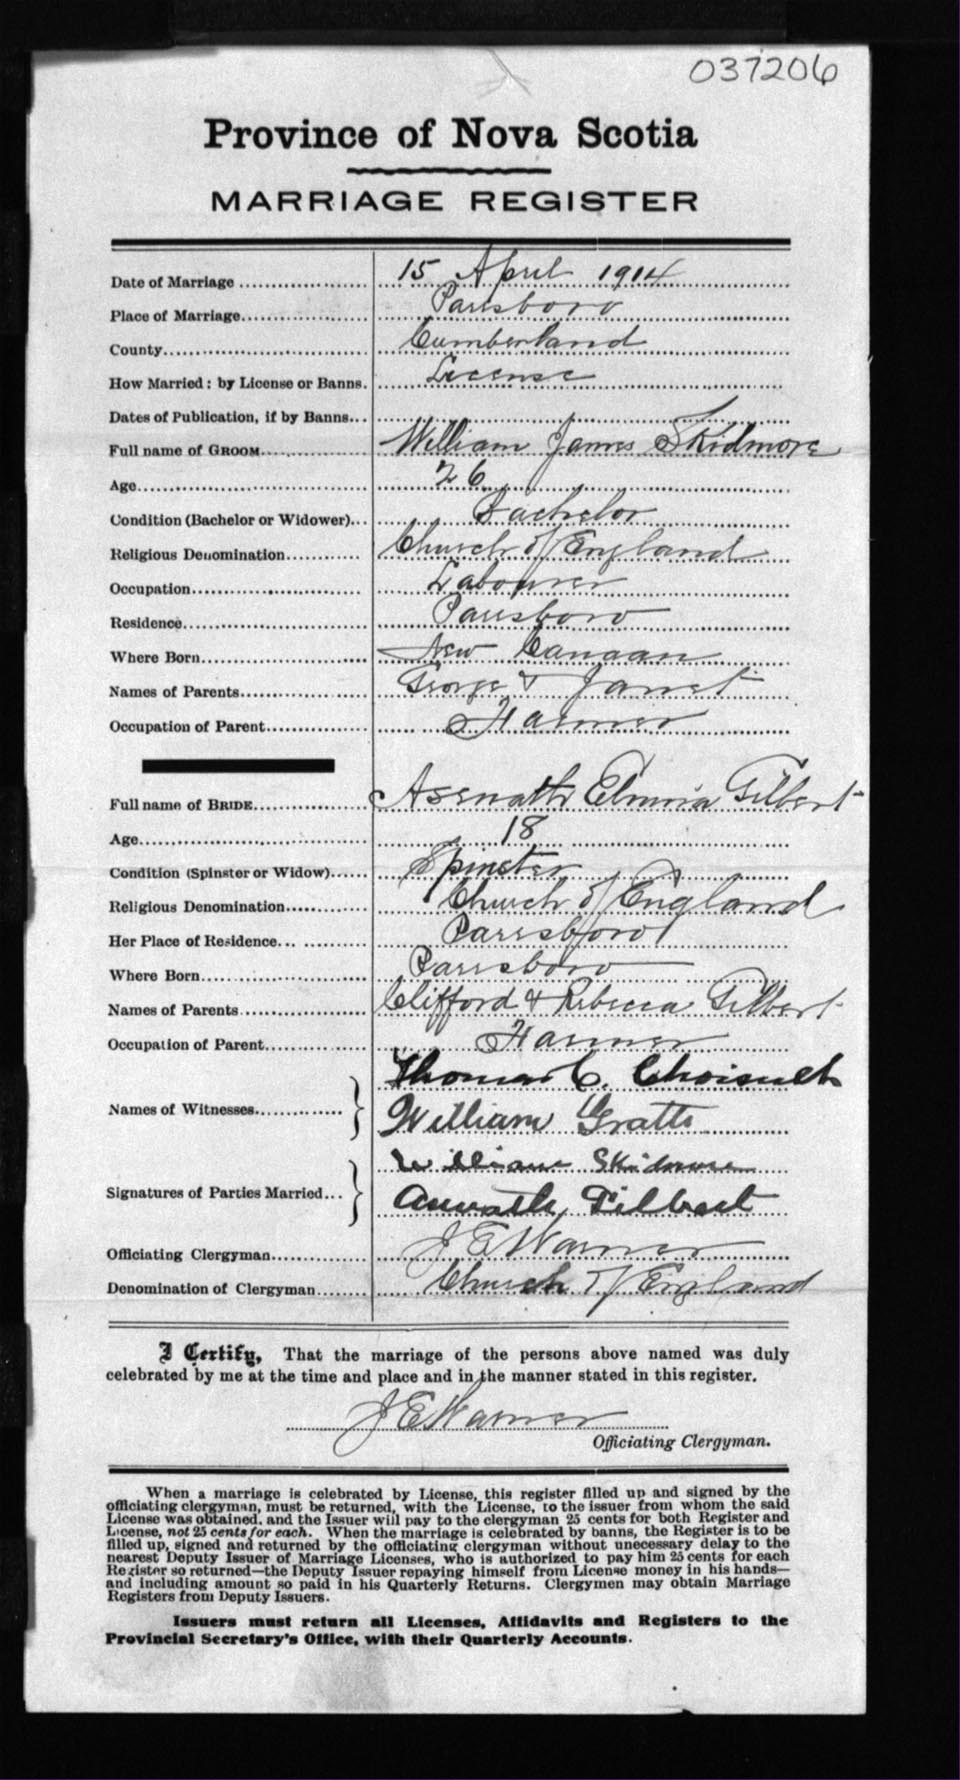 037206
Province of Nova Scotia
MARRIAGE REGISTER
Date of Marriage 15 April 1914
Place of Marriage Parrsboro
County Cumberland
How Married: by License or Banns. License
Dates of Publication, if by Banns
Full name of GROOM William James Skidmore
Age 26
Condition (Bachelor or Widower) Bachelor
Religious Denomination Church of England
Occupation Labourer
Residence Parrsboro
Where Born New Canaan
Names of Parents George & Janet
Occupation of Parent Farmer
Full name of BRIDE Asenath Elmira Gilbert
Age 18
Condition (Spinster or Widow) Spinster
Religious Denomination Church of England
Her Place of Residence Parrsboro
Where Born Parrsboro
Names of Parents Clifford & Rebecca Gilbert
Occupation of Parent Farmer
Thomas C.
Names of Witnesses William
William Skidmore
Signatures of Parties Married Asenath Gilbert
Officiating Clergyman J E Warner
Denomination of Clergyman Church of England
I Certify, That the marriage of the persons above named was duly
celebrated by me at the time and place and in the manner stated in this register.
J E Warner
Officiating Clergyman.
When a marriage is celebrated by License, this register filled up and signed by the
officiating clergyman, must be returned, with the License, to the issuer from whom the said
License was obtained, and the Issuer will pay to the clergyman 25 cents for both Register and
License, not 25 cents for each. When the marriage is celebrated by banns, the Register is to be
filled up, signed and returned by the officiating clergyman without unnecessary delay to the
nearest Deputy Issuer of Marriage Licenses, who is authorized to pay him 25 cents for each
Register so returned—the Deputy Issuer repaying himself from License money in his hands—
and including amount so paid in his Quarterly Returns. Clergymen may obtain Marriage
Registers from Deputy Issuers.
Issuers must return all Licenses, Affidavits and Registers to the
Provincial Secretary's Office, with their Quarterly Accounts.